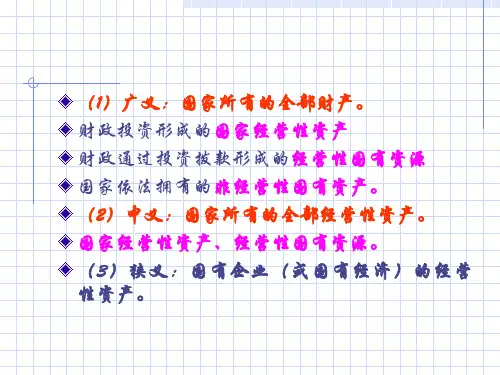 (1)广义：国家所有的全部财产。
财政投资形成的国家经营性资产
财政通过投资拨款形成的经营性国有资源
国家依法拥有的非经营性国有资产。
(2)中义：国家所有的全部经营性资产。
国家经营性资产、经营性国有资源。
(3)狭义：国有企业（或国有经济）的经营
性资产。